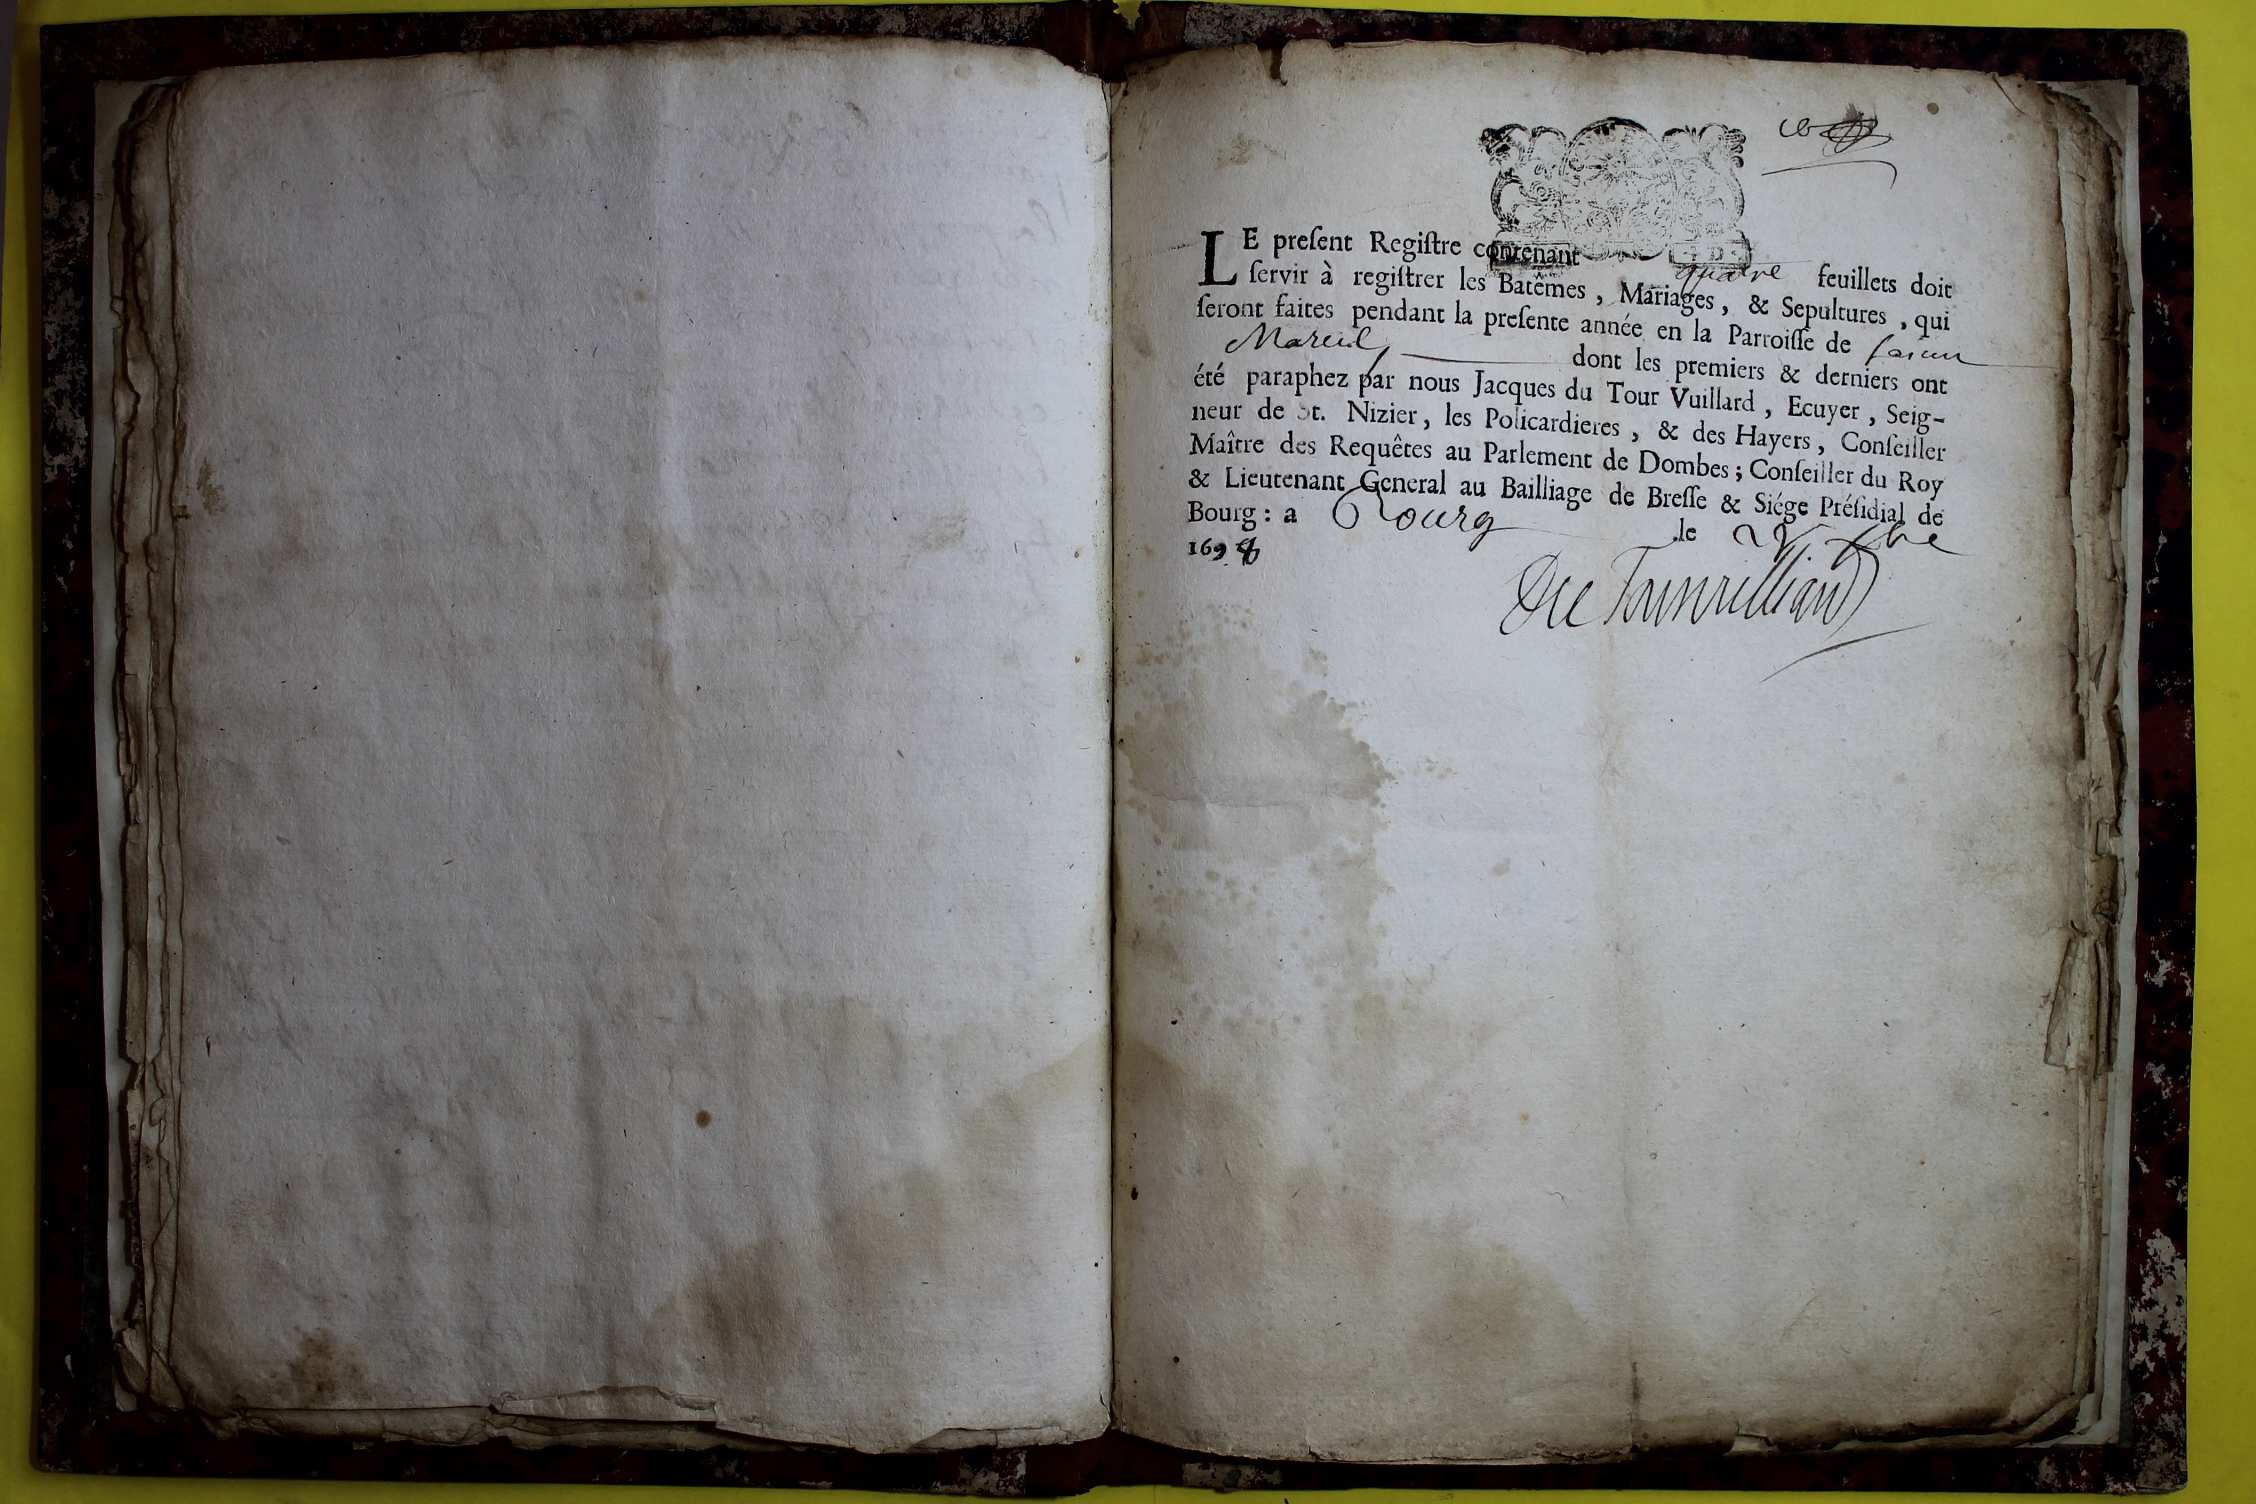 LE preſent Regiſtre contenant quatre feuillets doit
ſervir à regiſtrer les Batêmes, Mariages, & Sepultures, qui
ſeront faites pendant la preſente année en la Parroiſſe de
Mareil dont les premiers & derniers ont
été paraphez par nous Jacques du Tour Vuillard, Ecuyer, Seig-
neur de St. Nizier, les Policardieres, & des Hayers, Conſeiller
Maître des Requêtes au Parlement de Dombes; Conſeiller du Roy
& Lieutenant General au Bailliage de Breſſe & Siége Préſidial de
Bourg: a Bourg le
169